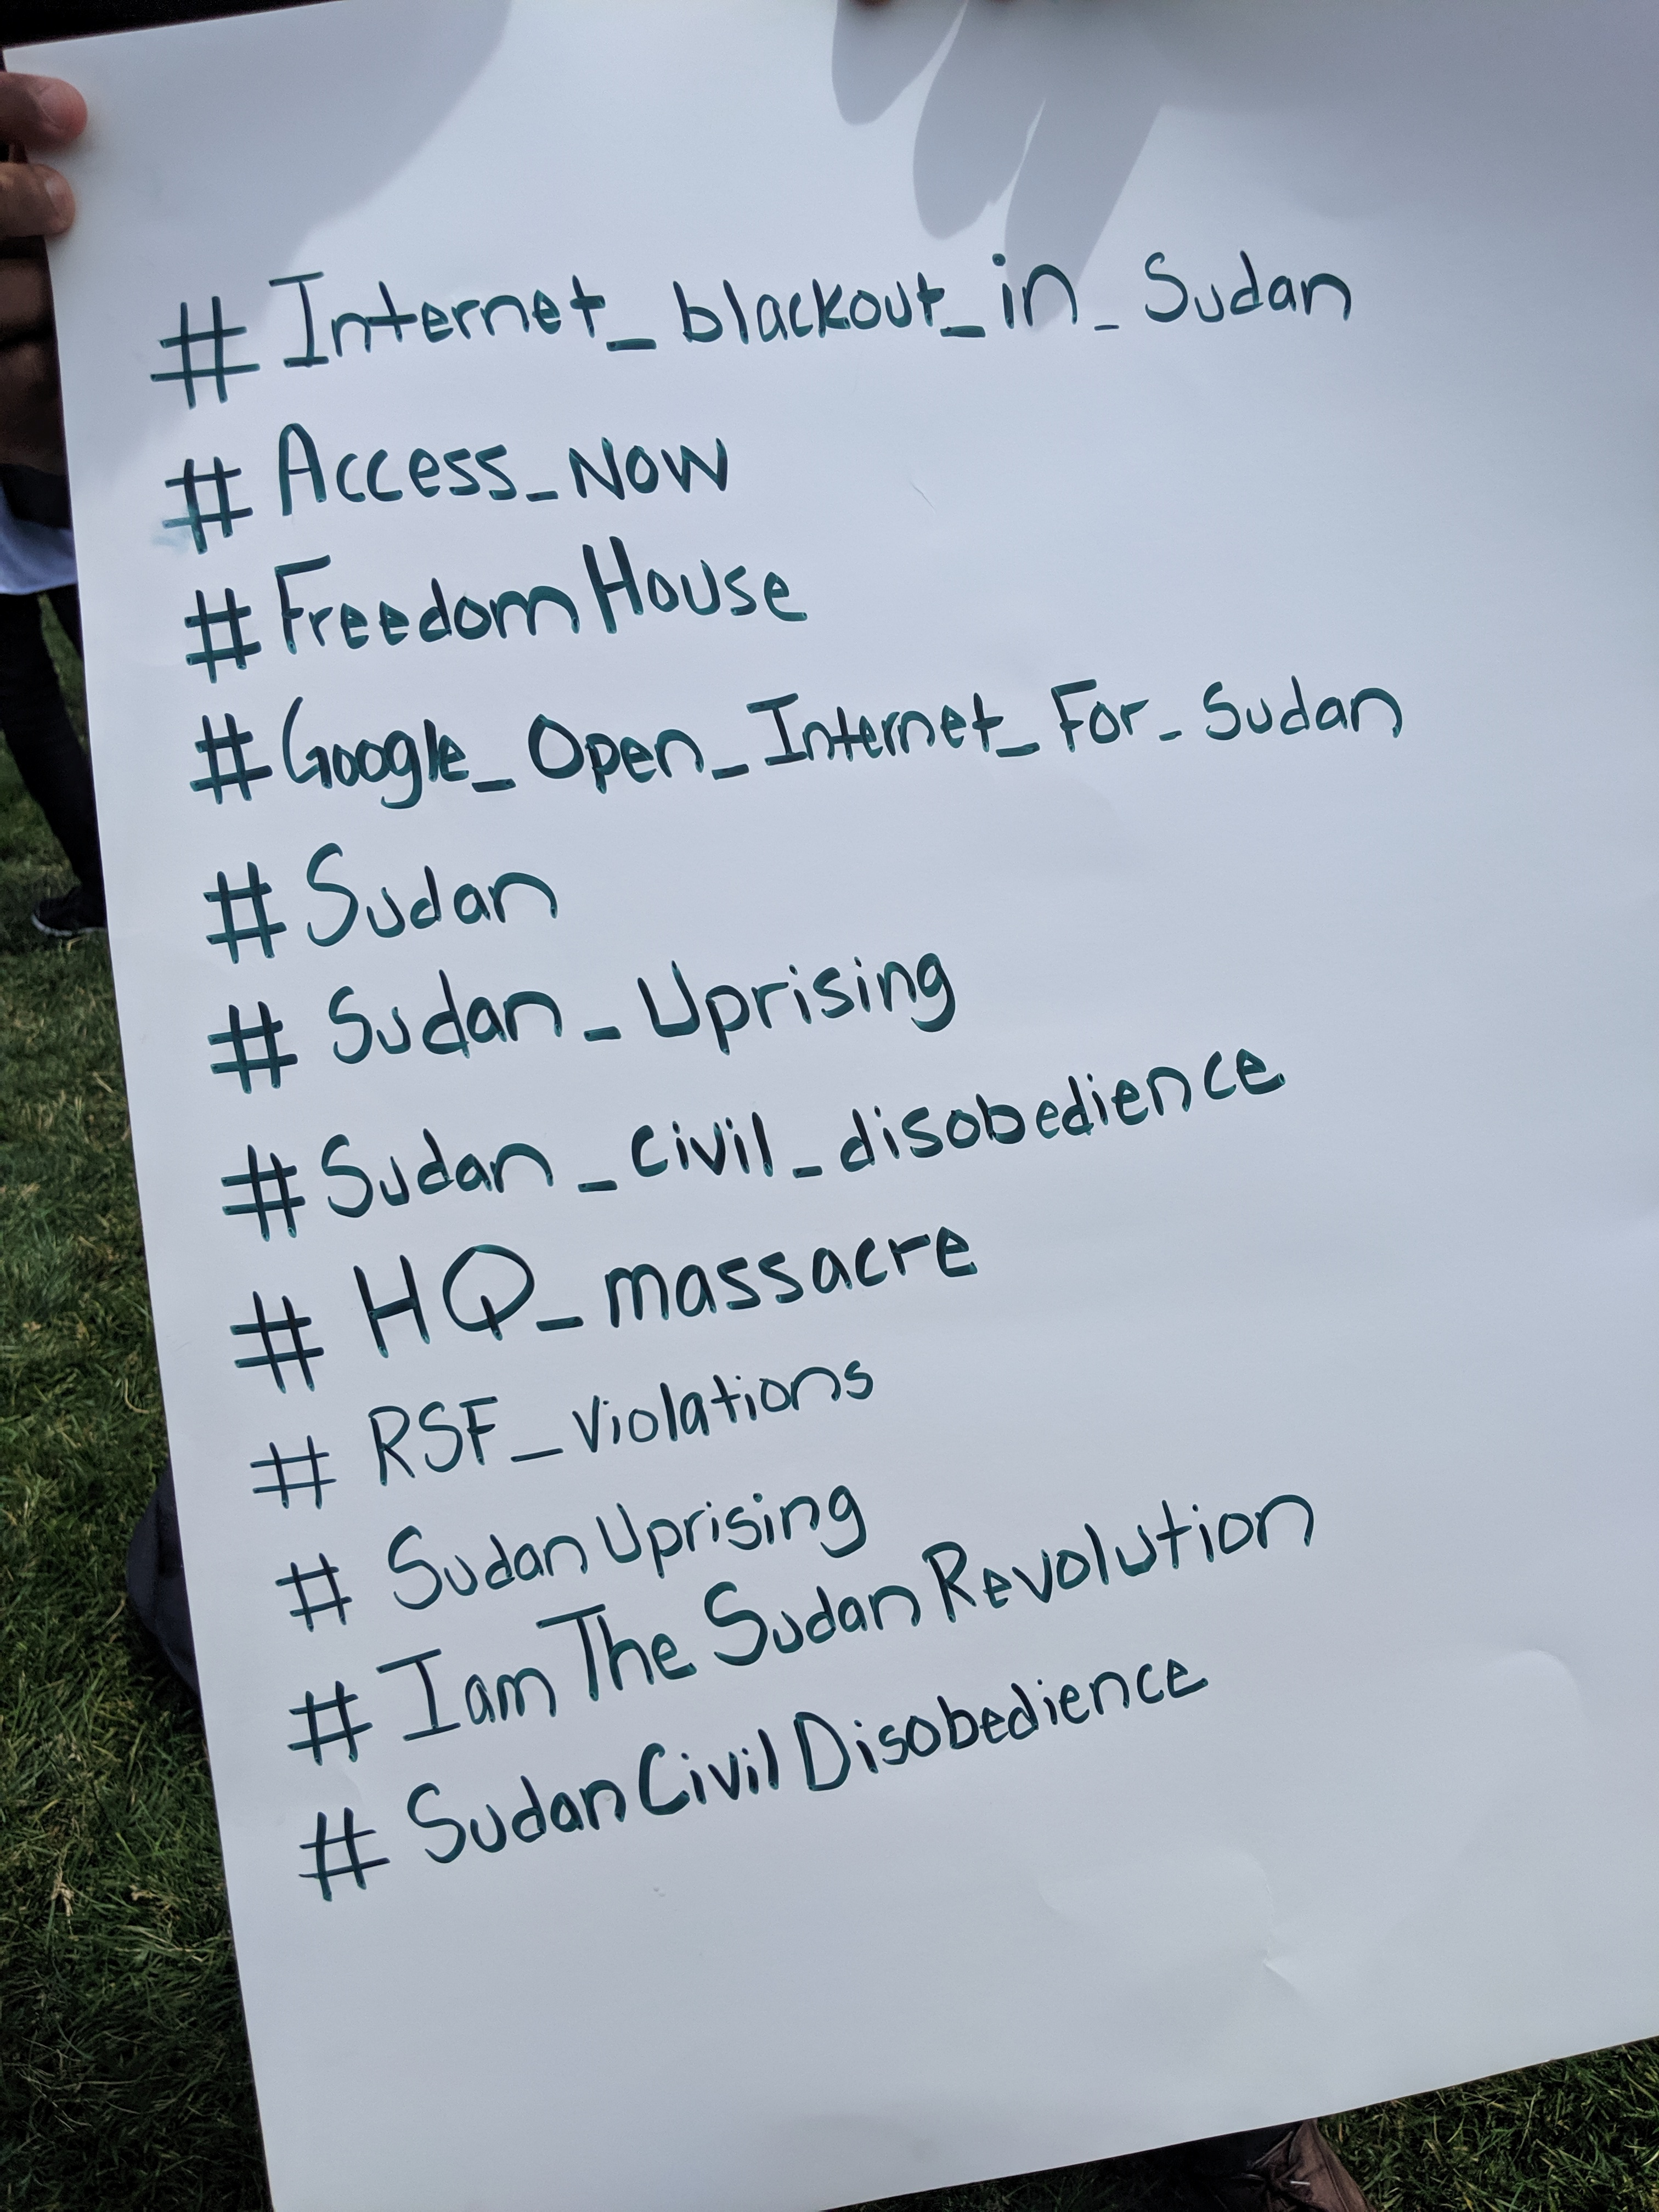 #Internet_blackout_in_Sudan
#Access_Now
#FreedomHouse
#Google_Open_Internet_For_Sudan
#Sudan
#Sudan_Uprising
#Sudan_civil_disobedience
#HQ_massacre
#RSF_violations
#SudanUprising
#IamTheSudanRevolution
#SudanCivilDisobedience